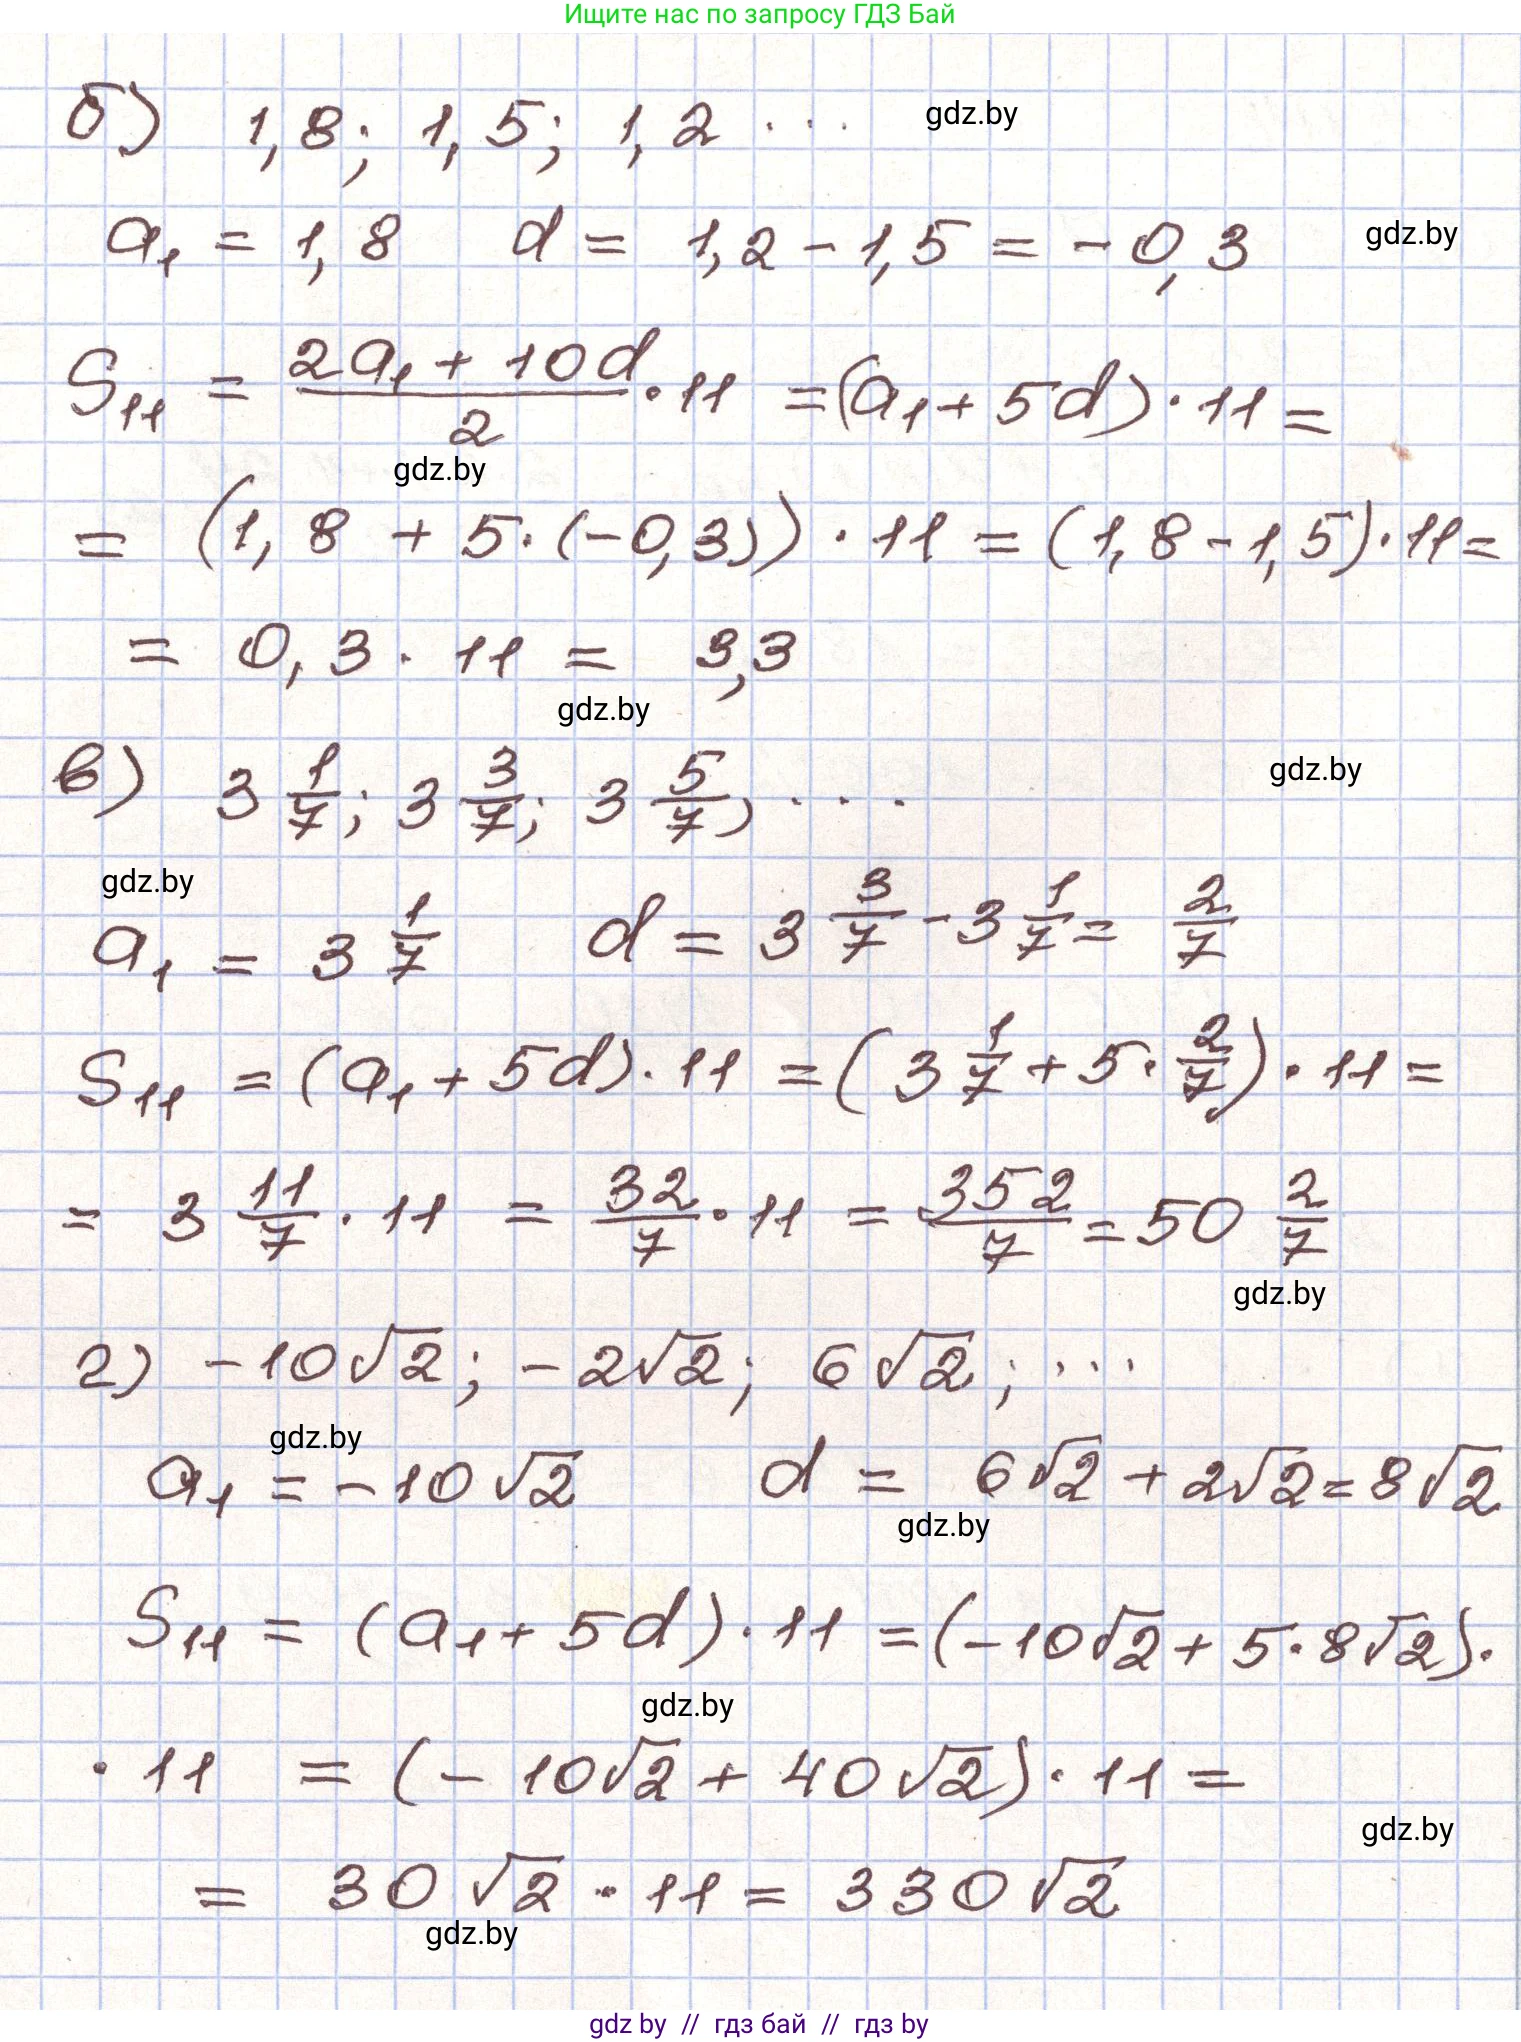 Ищите нас по запросу ГДЗ Бай
б) 1,8; 1,5; 1,2 ... gdz.by
a₁ = 1,8 d = 1,2 - 1,5 = - 0,3 gdz.by
S₁₁ = (2a₁ + 10d)/2 · 11 = (a₁ + 5d) · 11 =
gdz.by
= (1,8 + 5 · (-0,3)) · 11 = (1,8 - 1,5) · 11 =
= 0,3 · 11 = 3,3
gdz.by
в) 3 1/7; 3 3/7; 3 5/7, ... gdz.by
gdz.by
a₁ = 3 1/7 d = 3 3/7 - 3 1/7 = 2/7
S₁₁ = (a₁ + 5d) · 11 = (3 1/7 + 5 · 2/7) · 11 =
= 3 11/7 · 11 = 32/7 · 11 = 352/7 = 50 2/7
gdz.by
г) -10√2; -2√2; 6√2; ...
gdz.by
a₁ = -10√2 d = 6√2 + 2√2 = 8√2
gdz.by
S₁₁ = (a₁ + 5d) · 11 = (-10√2 + 5 · 8√2) ·
gdz.by
· 11 = (-10√2 + 40√2) · 11 =
gdz.by
= 30√2 · 11 = 330√2
gdz.by
gdz by // гдз бай // гдз by